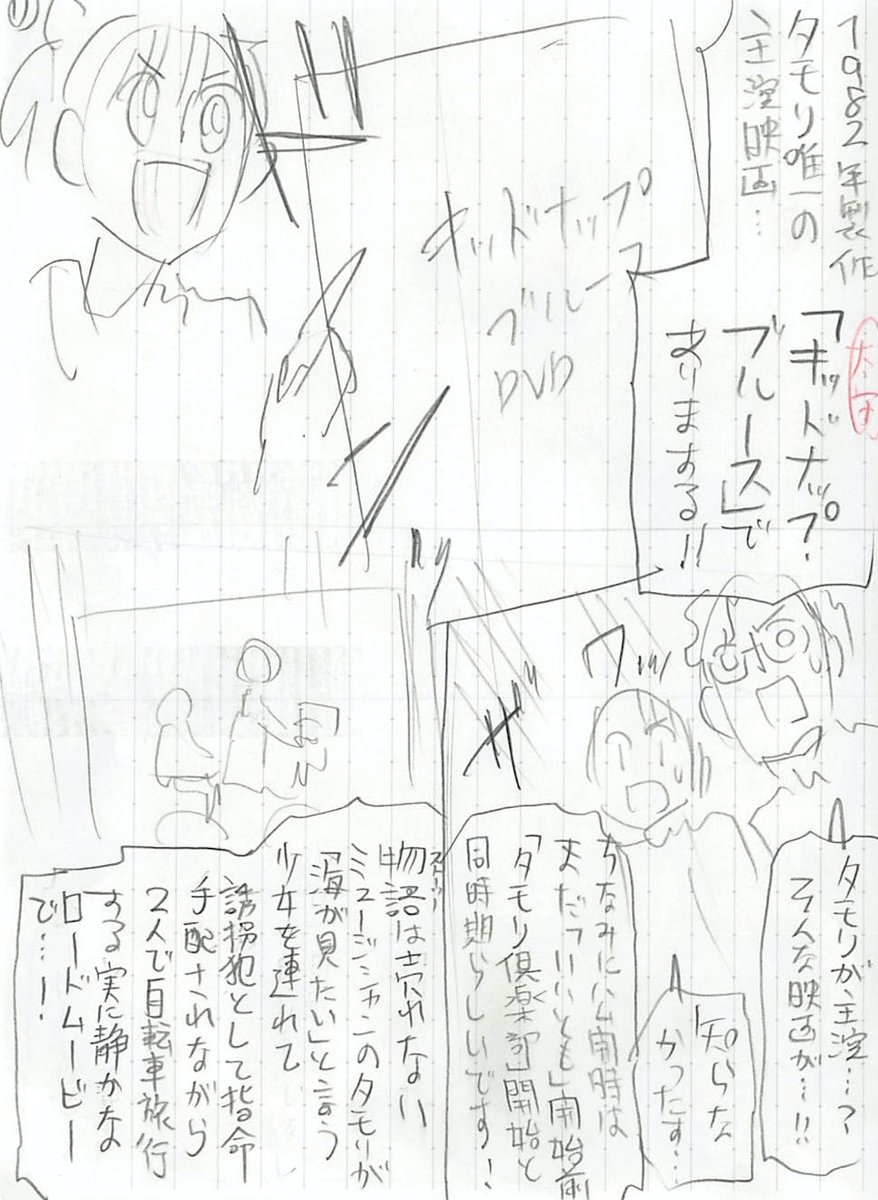 1982年製作
タモリ唯一の
主演映画…
「キッドナップ・
ブルース」で
ありまする!!
キッドナップ
ブルース
DVD
タモリが主演…?
そんな映画が…!!
知らな
かったす…
ワッ
ちなみに公開時は
まだ「いいとも」開始前
「タモリ倶楽部」開始と
同時期らしいです!
物語は売れない
ストーリー
ミュージシャンのタモリが
「海が見たい」と言う
少女を連れて
誘拐犯として指命
手配されながら
2人で自転車旅行
する実に静かな
ロードムービー
で…!